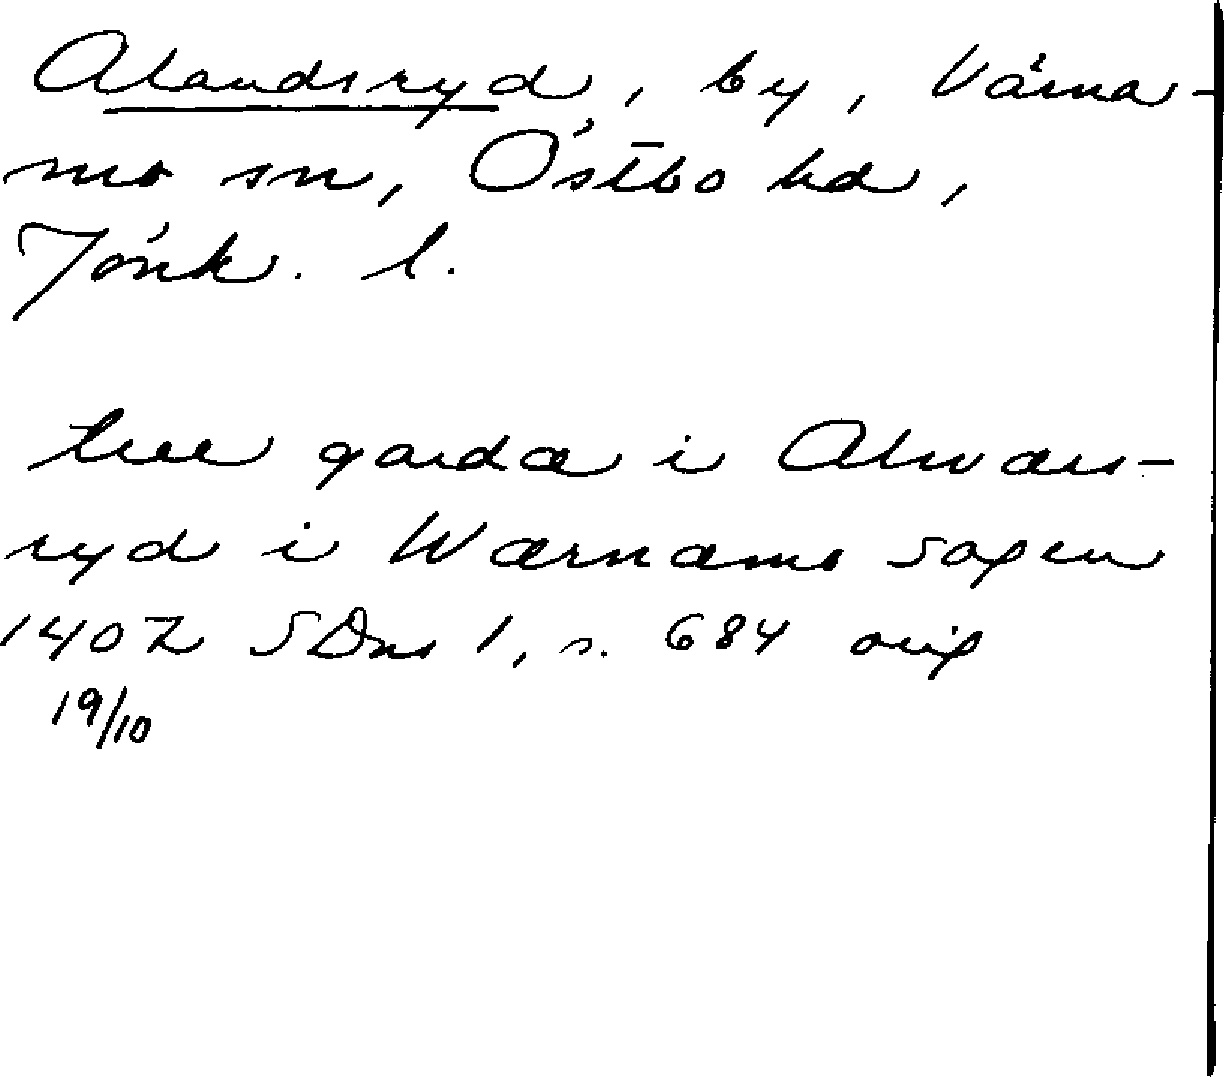 Alandsryd, by, Värna-
mo sn, Östbo hd,
Jönk. l.
tree gardæ i Alwærs-
ryd i Wærnæmo sogen
1402 SDns 1, s. 684 orig
19/10